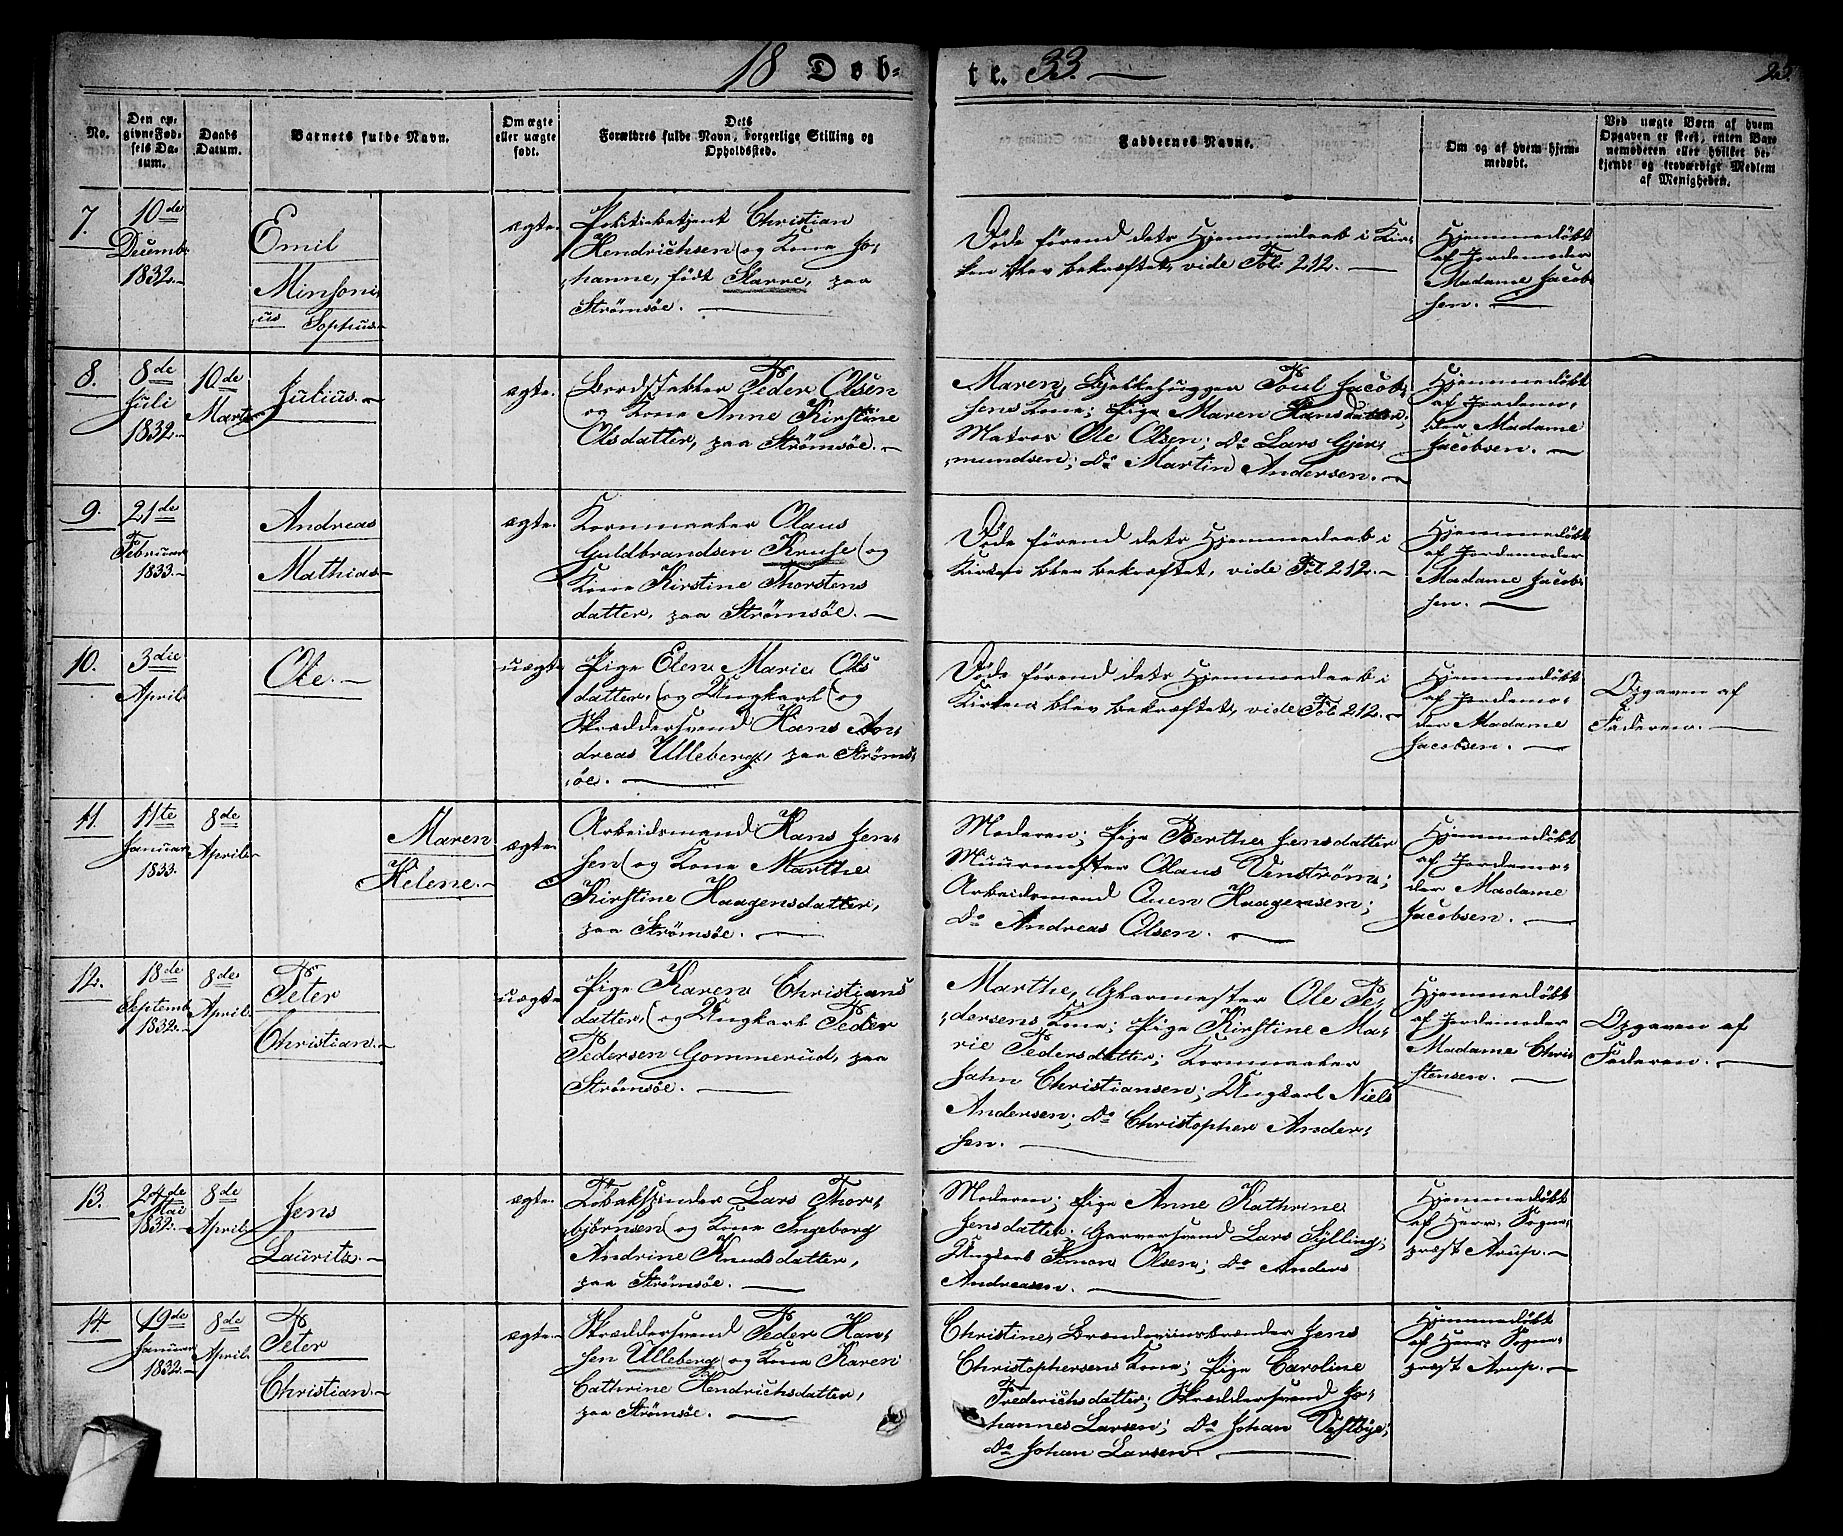 18 Døb-
te. 33.
No.
Den op-
givne Fød-
sels Da-
tum.
Daabs
Datum.
Barnets fulde Navn.
Om ægte
eller uægte
født.
Dets
Forældres fulde Navn, borgerlige Stilling og
Opholdssted.
Faddernes Navne.
Om og af hvem hjem-
medøbt.
Ved uægte Børn af hvem
Opgaven er skeet, enten Bar-
nemoderen eller hvilket be-
kjendt og troværdigt Medlem
af Menigheden.
7.
10de
Decemb.
1832.
Emil
Sophus.
ægte
Politiebetjent Christian
Hendrichsen (og Kone Jo-
hanne, født Starre, paa
Strømsøe.
Døde førend dets Hjemmedaab i Kir-
ken blev bekræftet, vide Fol: 212.
Hjemmedøbt
af Jordemoder
Madame Jacob-
sen.
8.
8de
Juli
1832.
10de
Marts
Julius.
ægte.
Bordstabler Peder Olsen
og Kone Anne Kirstine
Olsdatter, paa Strømsøe.
Maren, Bjelkehugger Poul Jacob-
sens Kone; Pige Maren Hansdatter;
Matros Ole Olsen; Do Lars Gjer-
mundsen; Do Martin Andersen.
Hjemmedøbt
af Jordemo-
der Madame
Jacobsen.
9.
21de
Februar
1833.
Andreas
Mathias
ægte.
Kornmaaler Olaus
Guldbrandsen Kruse (og
Kone Kirstine Thorstens
datter, paa Strømsøe.
Døde førend dets Hjemmedaab i
Kirken blev bekræftet, vide Fol 212.
Hjemmedøbt
af Jordemoder
Madame Jacob-
sen.
10.
3die
April
Ole.
uægte
Pige Elen Marie Ols
datter, (og Ungkarl (og
Skræddersvend Hans An-
dreas Ulleberg, paa Strøms-
øe.
Døde førend dets Hjemmedaab i
Kirken blev bekræftet, vide Fol 212.
Hjemmedøbt
af Jordemo-
der Madame
Jacobsen.
Opgaven af
Faderen.
11.
11te
Januar
1833.
8de
April
Maren
Helene.
ægte
Arbeidsmand Hans Jen-
sen (og Kone Marthe
Kirstine Haagensdatter,
paa Strømsøe.
Moderen; Pige Berthe Jensdatter
Muurmester Olaus Venstrøm;
Arbeidsmand Ouen Haagensen;
Do Andreas Olsen.
Hjemmedøbt
af Jordemo-
der Madame
Jacobsen.
12.
18de
Septemb.
1832.
8de
April
Peter
Christian.
uægte
Pige Karen Christians
datter, (og Ungkarl Peder
Pedersen Gommerud, paa
Strømsøe.
Marthe, Glarmester Ole Pe-
dersens Kone; Pige Kirstine Ma-
rie Pedersdatter; Kornmaaler
Jahn Christiansen; Ungkarl Niels
Andersen; Do Christopher Ander-
sen.
Hjemmedøbt
af Jordemoder
Madame Chris
stensen.
Opgaven af
Faderen.
13.
24de
Mai
1832.
8de
April
Jens
Lauritz.
ægte.
Tobakspinder Lars Thor-
bjørnsen (og Kone Ingeborg
Andrine Knudsdatter,
paa Strømsøe.
Moderen; Pige Anne Kathrine
Jensdatter; Garversvend Lars Sylling;
Ungkarl Simon Olsen; Do Anders
Andreasen.
Hjemmedøbt
af Herr Sogne-
præst Arup.
14.
19de
Januar
1832.
8de
April
Peter
Christian.
ægte
Skræddersvend Peder Han-
sen Ulleberg (og Kone Karen
Cathrine Hendrichsdatter,
paa Strømsøe.
Christine, Brændeviinsbrænder Jens
Christophersens Kone; Pige Caroline
Frederichsdatter; Skræddersvend Jo-
hannes Larsen; Do Johan Vestbye;
Do Johan Larsen.
Hjemmedøbt
af Herr Sogne-
præst Arup.